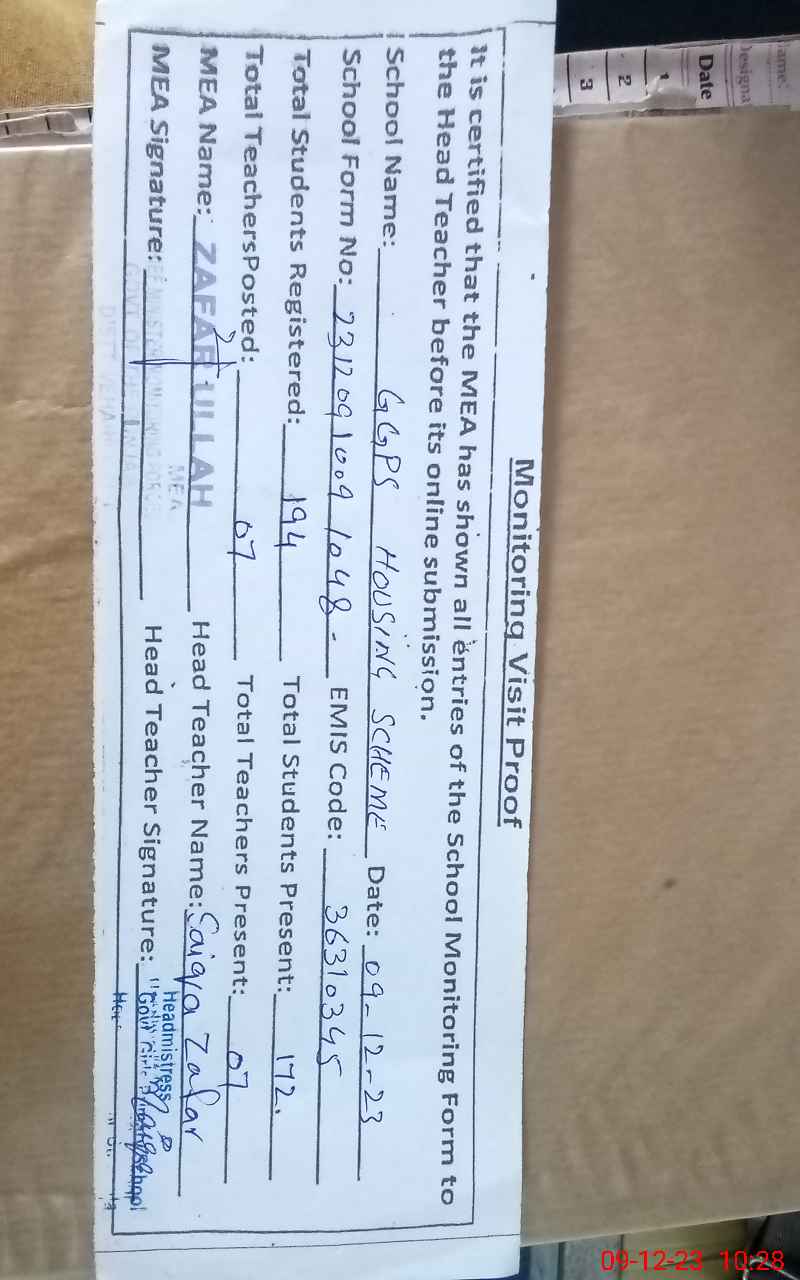 Monitoring Visit Proof
It is certified that the MEA has shown all entries of the School Monitoring Form to
the Head Teacher before its online submission.
School Name: GGPS HOUSING SCHEME Date: 09-12-23
School Form No: 2312091009 1048- EMIS Code: 36310345
Total Students Registered: 194 Total Students Present: 172.
Total TeachersPosted: 07 Total Teachers Present: 07
MEA Name: ZAFAR ULLAH Head Teacher Name: Saiqa Zafar
MEA
MEA Signature: Head Teacher Signature:
Headmistress
Govt Girls
Date
1
2
3
09-12-23 10:28